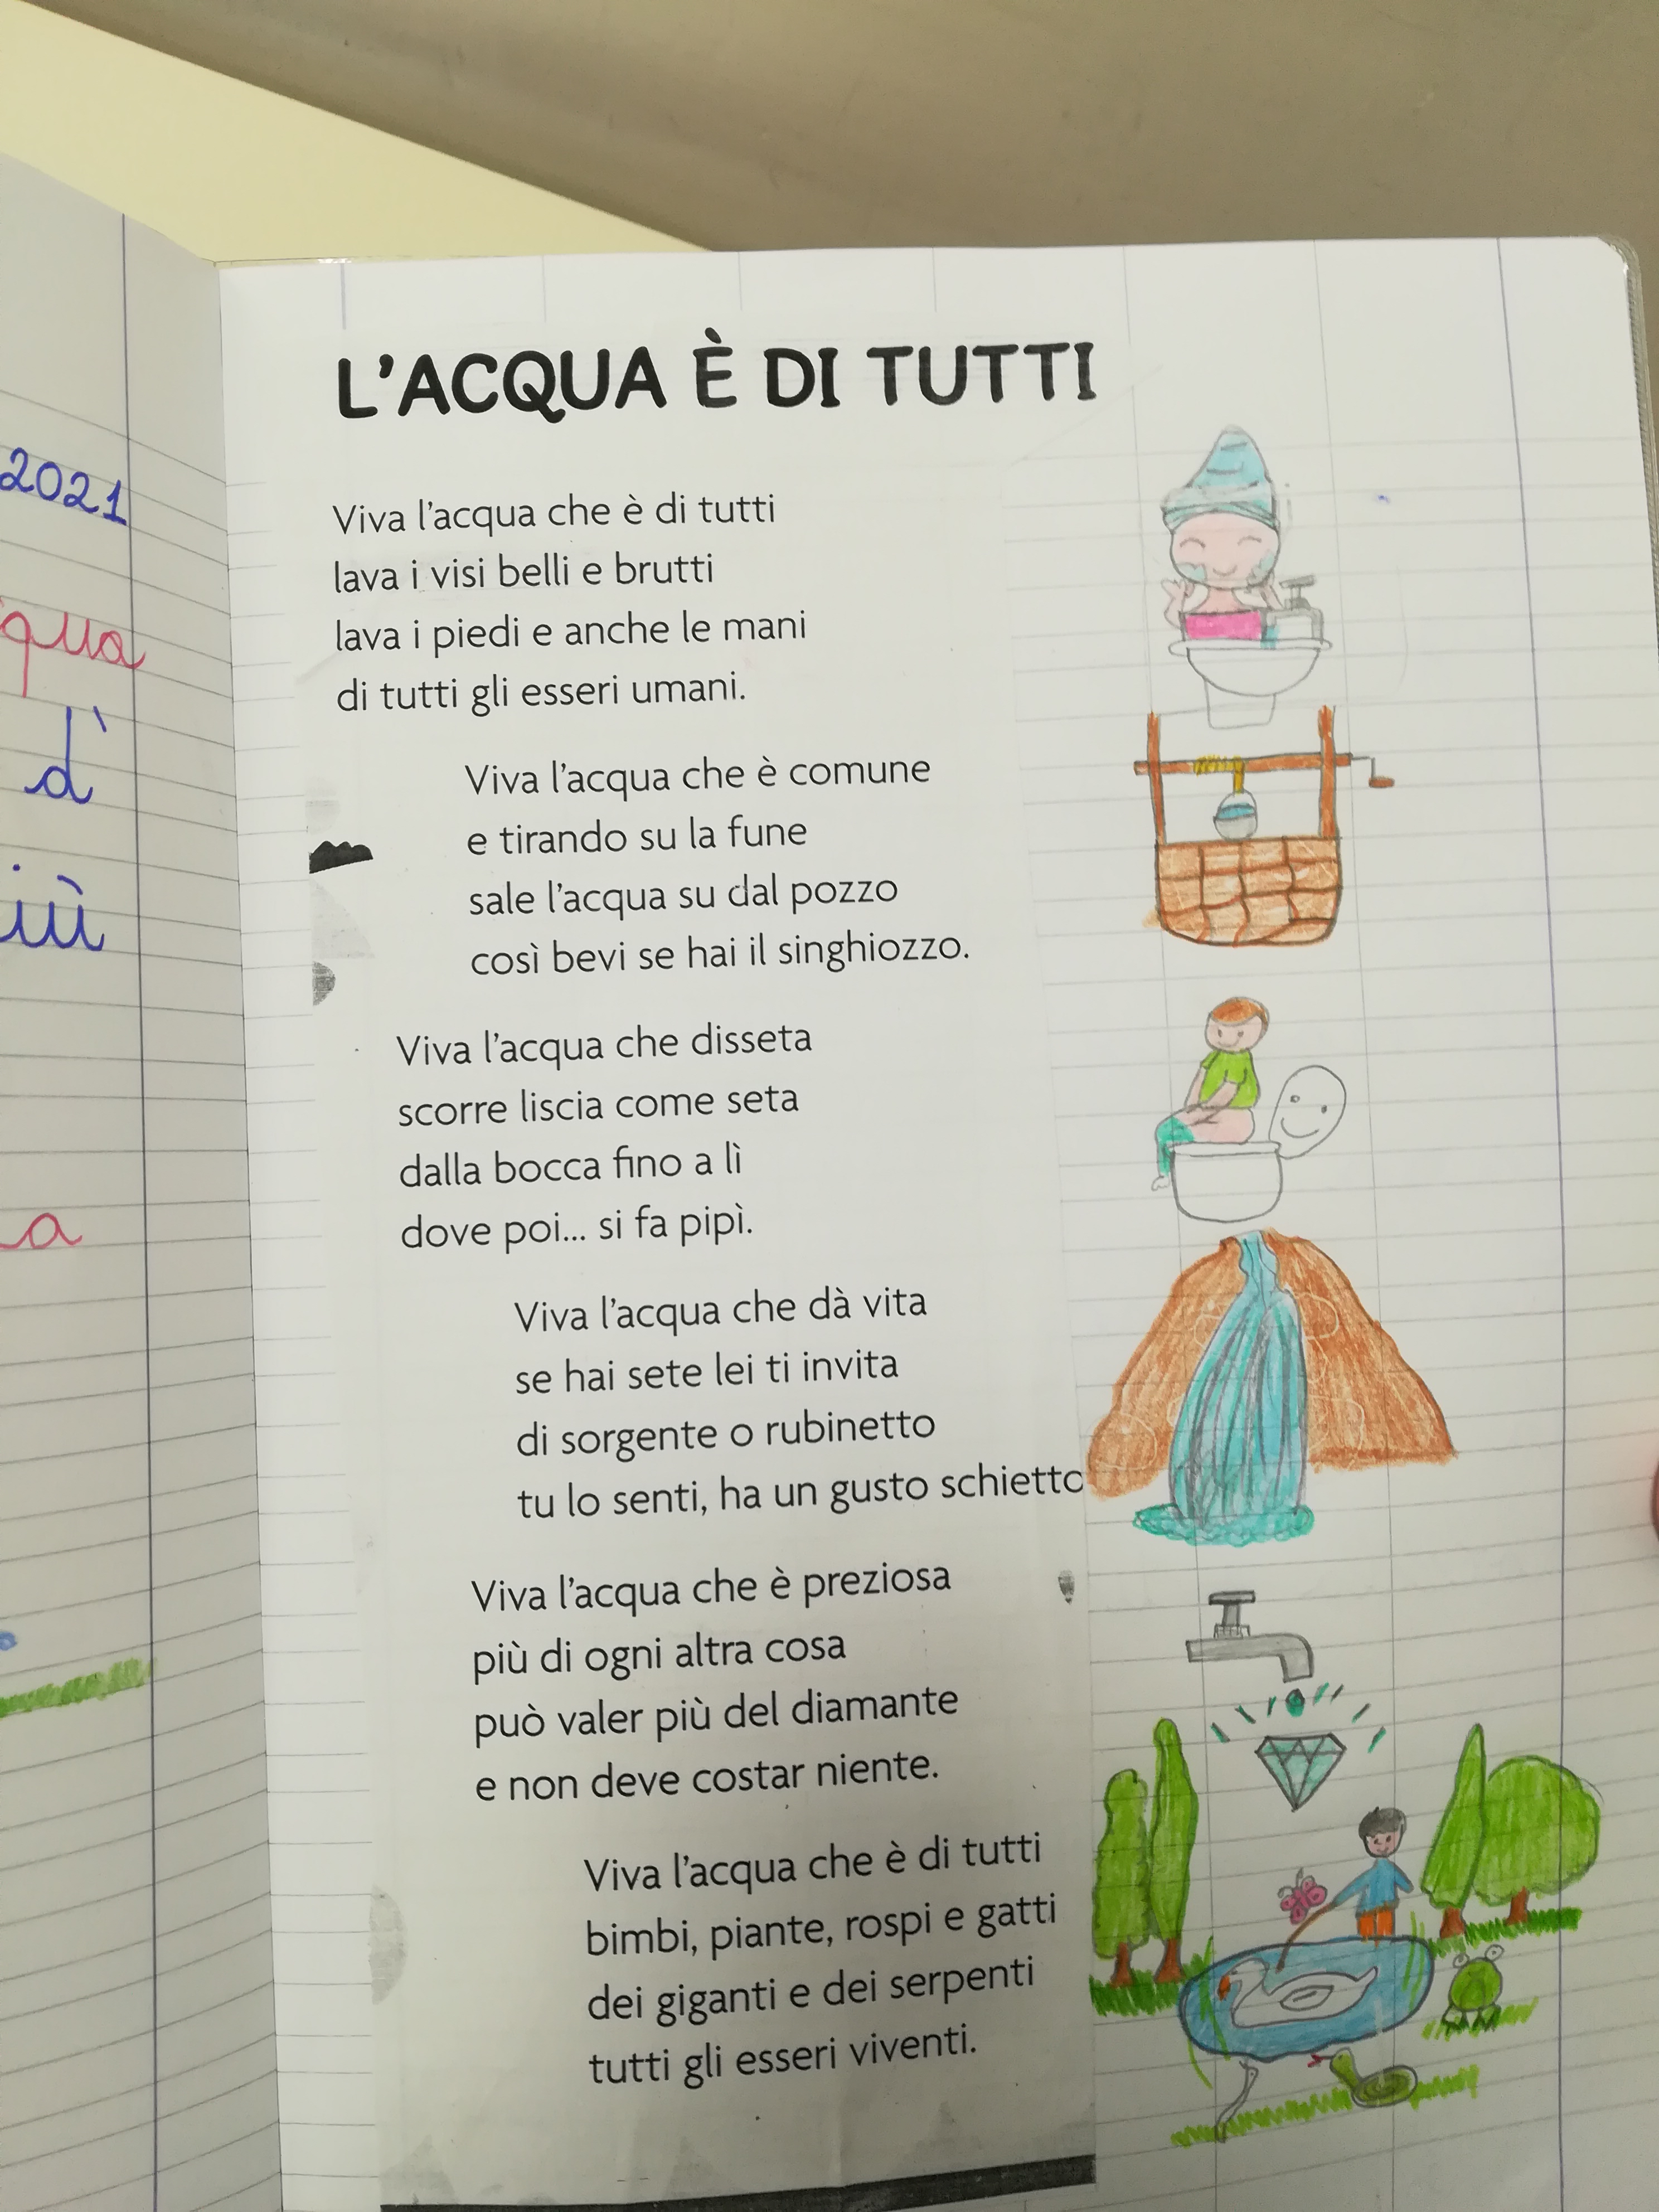 2021
qua
d'
iù
a
L'ACQUA È DI TUTTI
Viva l'acqua che è di tutti
lava i visi belli e brutti
lava i piedi e anche le mani
di tutti gli esseri umani.
Viva l'acqua che è comune
e tirando su la fune
sale l'acqua su dal pozzo
così bevi se hai il singhiozzo.
Viva l'acqua che disseta
scorre liscia come seta
dalla bocca fino a lì
dove poi... si fa pipì.
Viva l'acqua che dà vita
se hai sete lei ti invita
di sorgente o rubinetto
tu lo senti, ha un gusto schietto
Viva l'acqua che è preziosa
più di ogni altra cosa
può valer più del diamante
e non deve costar niente.
Viva l'acqua che è di tutti
bimbi, piante, rospi e gatti
dei giganti e dei serpenti
tutti gli esseri viventi.